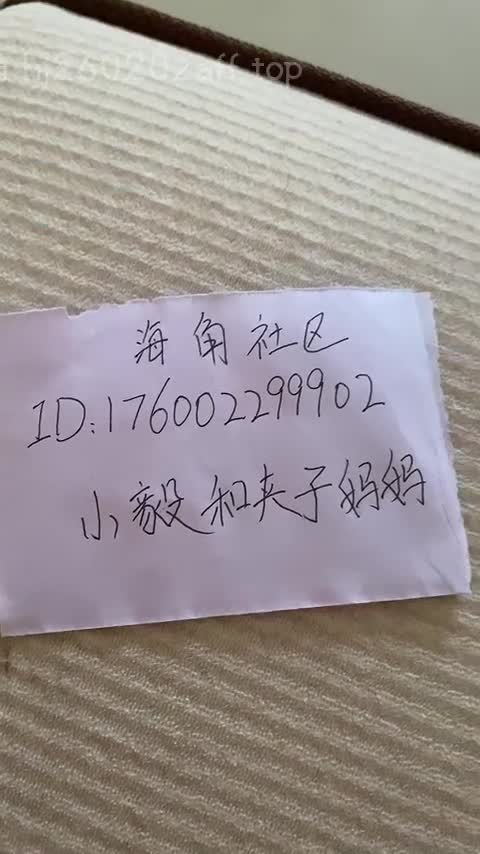 hj260202aff.top
海角社区
ID:176002299902
小毅和夹子妈妈